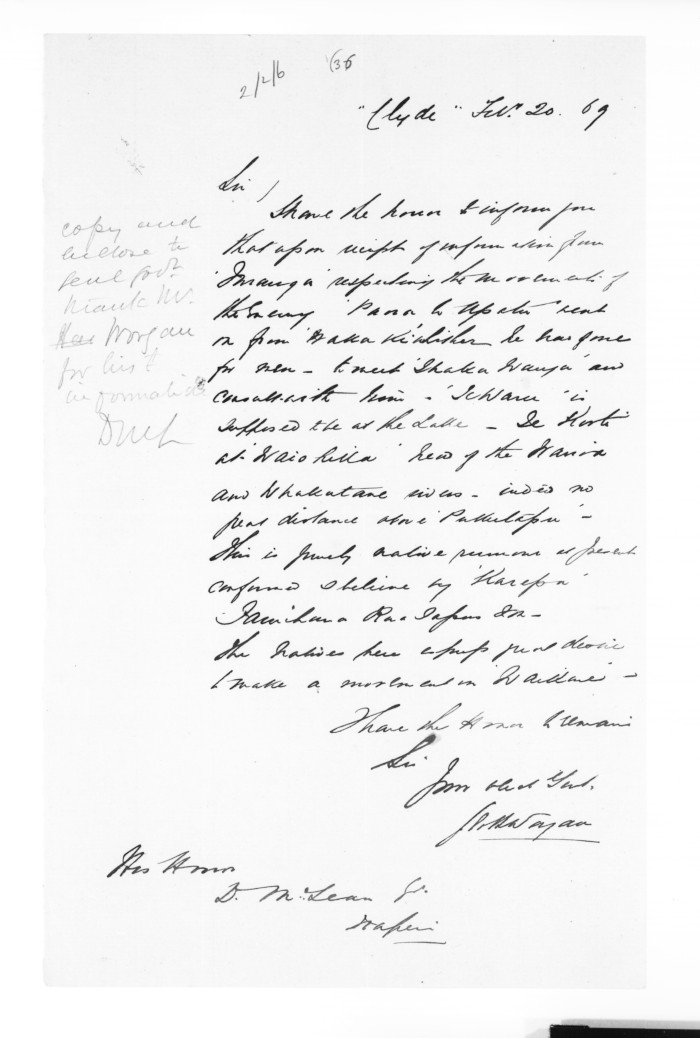 2/2/6 (36
"Clyde" Feb. 20. 69
Sir/
I have the honor to inform you
that upon receipt of information from
respecting the movements of
the Enemy 'Paora te Apatu' sent
on from he has gone
for men - to meet 'Ihaka Whanga' and
consult with him - is
supposed to be at the Lake - Te Kooti
at head of the Wairoa
and Whakatane rivers - indeed no
great distance above 'Pukutapu' -
This is purely native rumour at present
confirmed I believe by 'Karepa'
Tamihana
The Natives here express great desire
to make a movement on -
I have the Honor to remain
Sir
Your obed Servt.
Worgan
His Honor
D. McLean Esq.
Napier
copy and
enclose to
Genl Govt
thank Mr.
Worgan
for his
information
DMcL